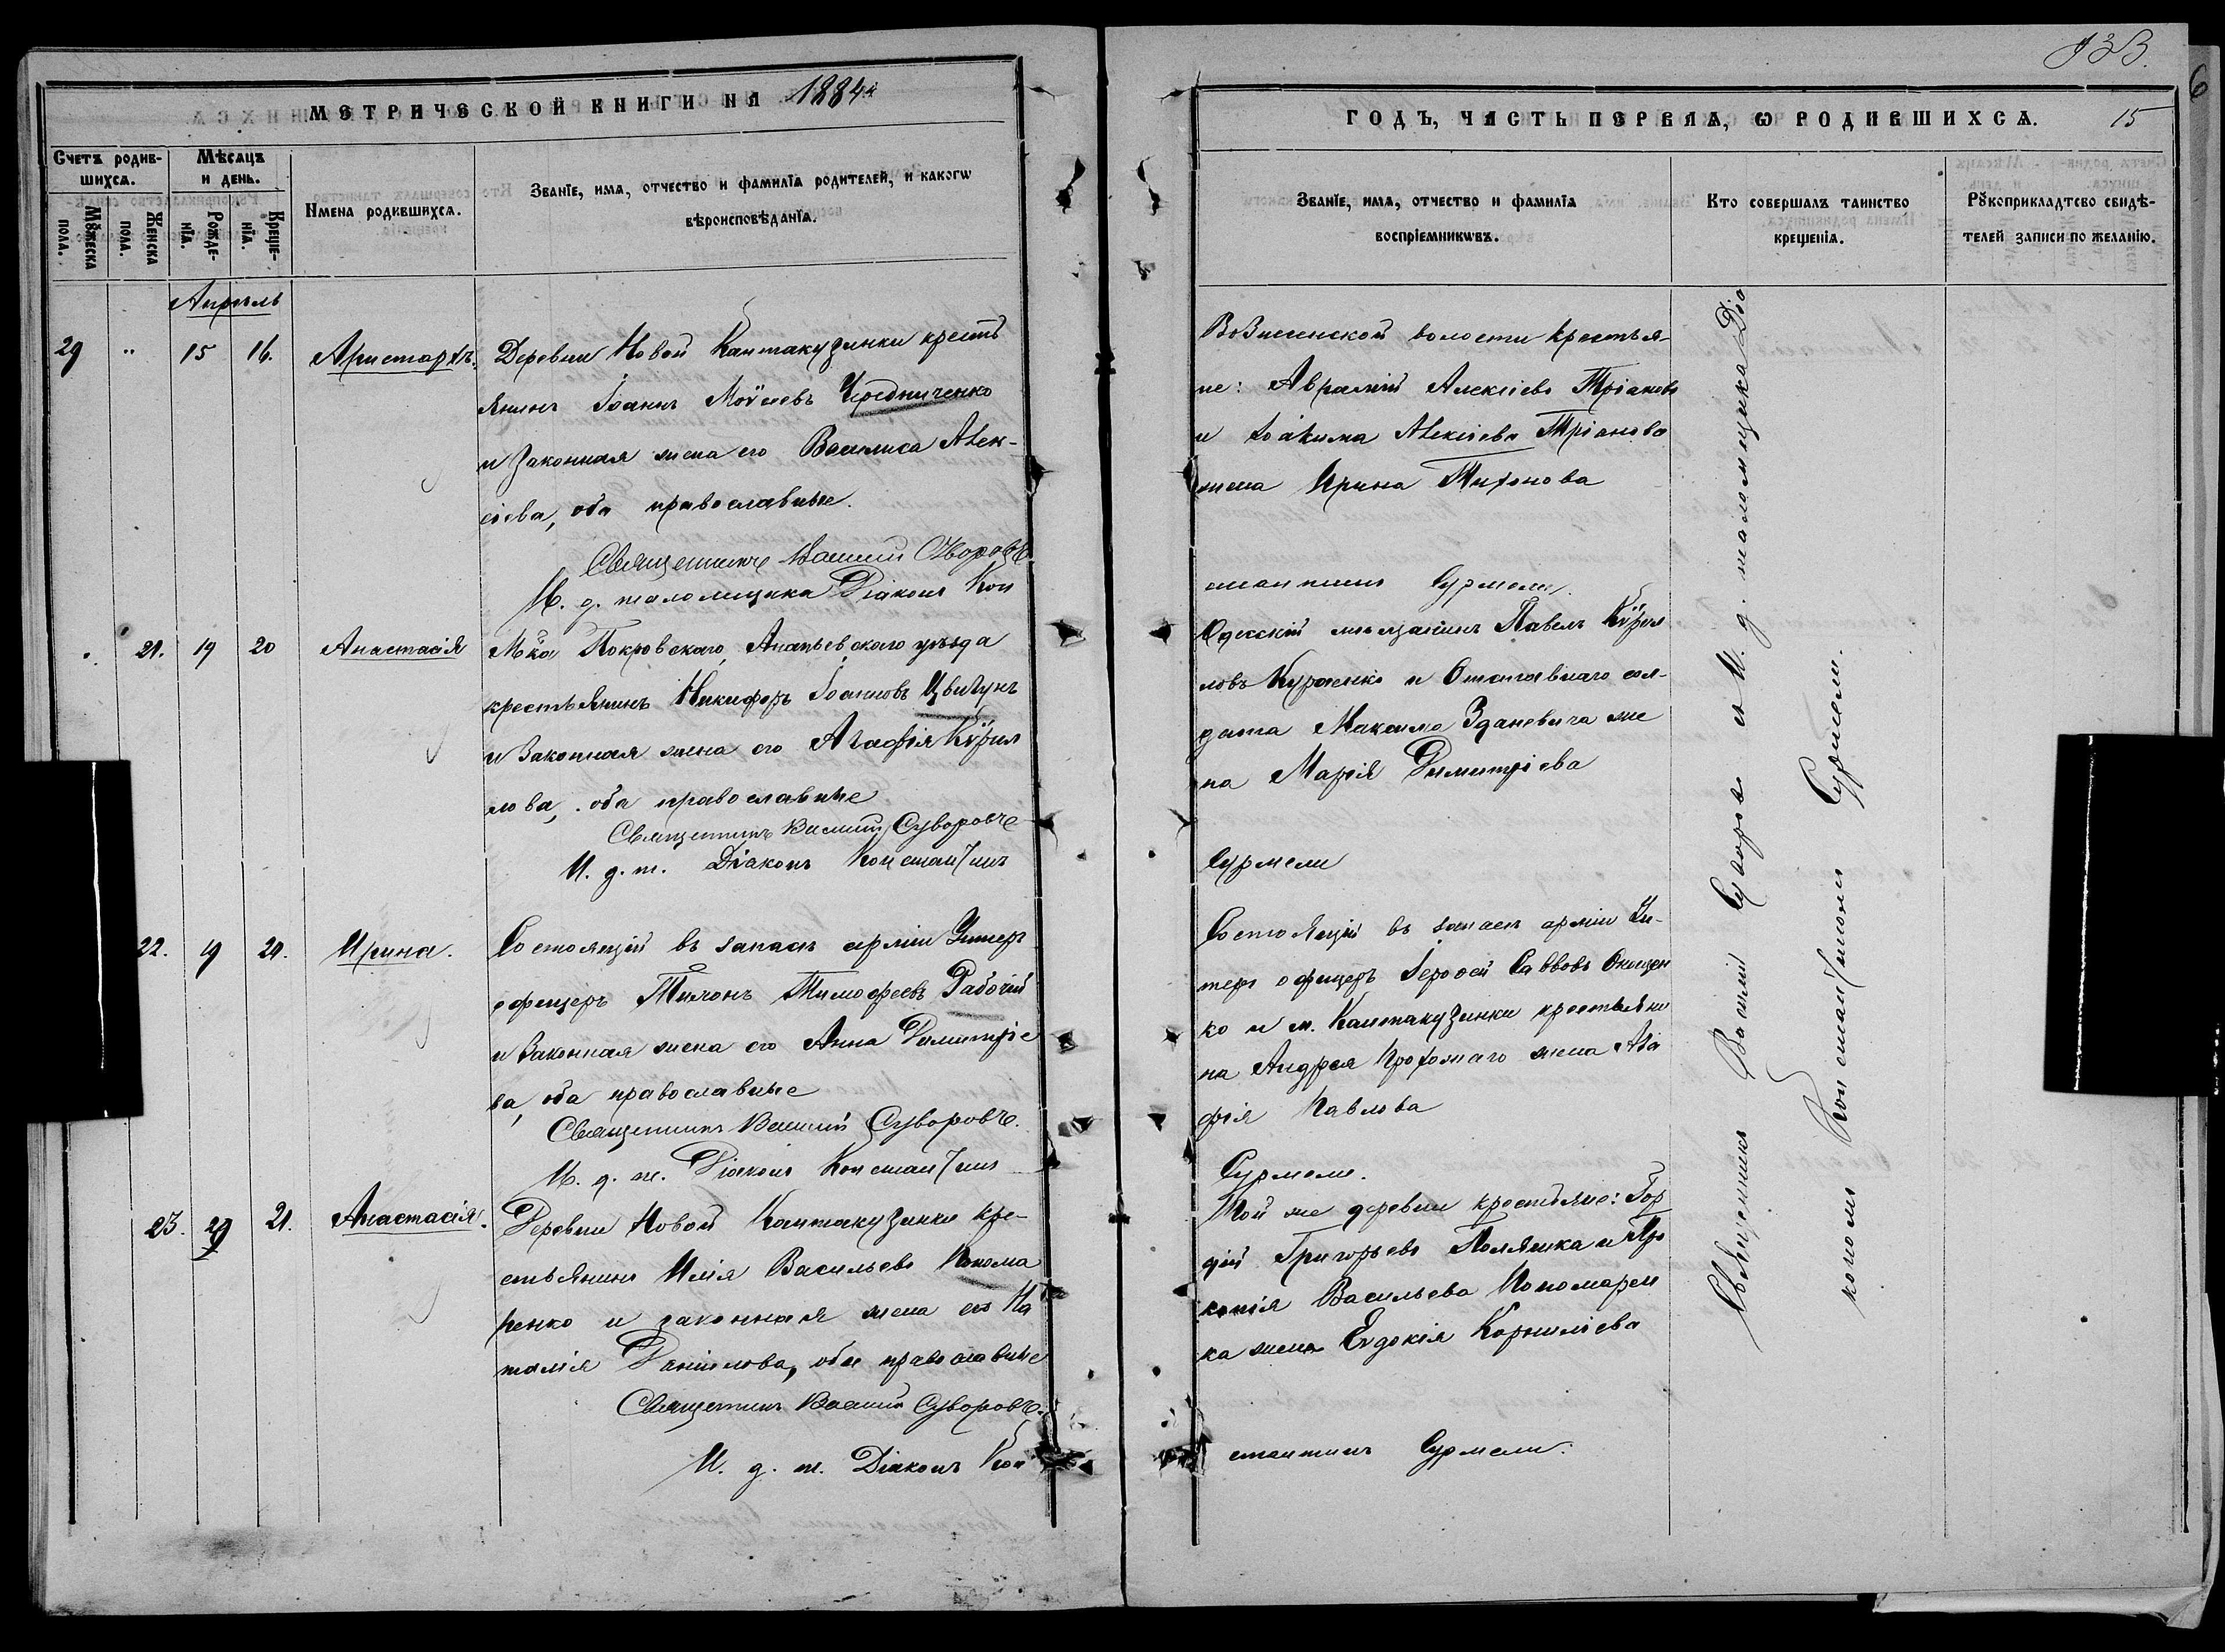 15
МЕТРИЧЕСКОЙ КНИГИ НА 1884й
ГОДЪ, ЧАСТЬ ПЕРВАЯ, Ѡ РОДИВШИХСЯ.
Счетъ родив-
шихся.
Мѣсяцъ
и день.
Мꙋжеска
пола.
Женска
пола.
Рожде-
нїя.
Креще-
нїя.
Имена родившихся.
Званїе, имя, отчество и фамилїя родителей, и какогѡ
вѣроисповѣданїя.
Званїе, имя, отчество и фамилїя
воспрїемникѡвъ.
Кто совершалъ таинство
крещенїя.
Рꙋкоприкладтсво свидѣ-
телей записи по желанїю.
Апрѣль
29 " 15 16. Аристархъ.
Деревни Новой Кантакузинки кресть
янинъ Іоаннъ Моѵсеевъ Чередниченко
и законная жена его Василиса Алек-
сіева, оба православные.
Священникъ Василій Суворовъ
И. д. псаломщика Діаконъ Кон
Вознесенской волости крестья-
не: Аврамій Алексіевъ Тріановъ
и Іоакима Алексіева Тріанова
жена Ирина Тихонова
стантинъ Сурмели.
21. 19 20 Анастасія
М҃ка Покровскаго, Ананьевскаго уѣзда
крестьянинъ Никифоръ Іоанновъ Цвигунъ
и законная жена его Агафія Кѵрил
лова, оба православные
Священникъ Василій Суворовъ
И. д. п. Діаконъ Константинъ
Одесскій мѣщанинъ Павелъ Кѵрил
ловъ Кураенко и Отставнаго сол-
дата Максима Здановича же
на Марія Димитріева
Сурмели
22. 19 21. Ирина.
Состоящій въ запасѣ арміи Унтеръ
офицеръ Тихонъ Тимофеевъ Рабочій
и законная жена его Анна Димитріе
ва, оба православные
Священникъ Василій Суворовъ.
И. д. п. Діаконъ Константинъ
Состоящій въ запасѣ арміи Ун-
теръ офицеръ Іерофей Саввовъ Онищен
ко и м. Кантакузинки крестьяни
на Андрея жена Ага
фія Павлова
Сурмели.
23. 19 21. Анастасія.
Деревни Новой Кантакузинки кре-
стьянинъ Илія Васильевъ Понома
ренко и законная жена его На
талія Даніилова, оба православные
Священникъ Василій Суворовъ.
И. д. п. Діаконъ Кон
Той же деревни крестьяне: Гор
дій Григорьевъ Полянка и Про
копія Васильева Пономарен
ка жена Евдокія Корниліева
стантинъ Сурмели.
Священникъ Василій Суворовъ и И. д. псаломщика Діа
конъ Константинъ Сурмели.